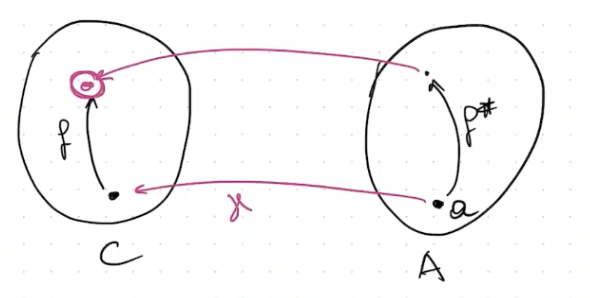 f
f#
γ
a
C
A